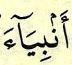 أَنۢبِيَآءَ